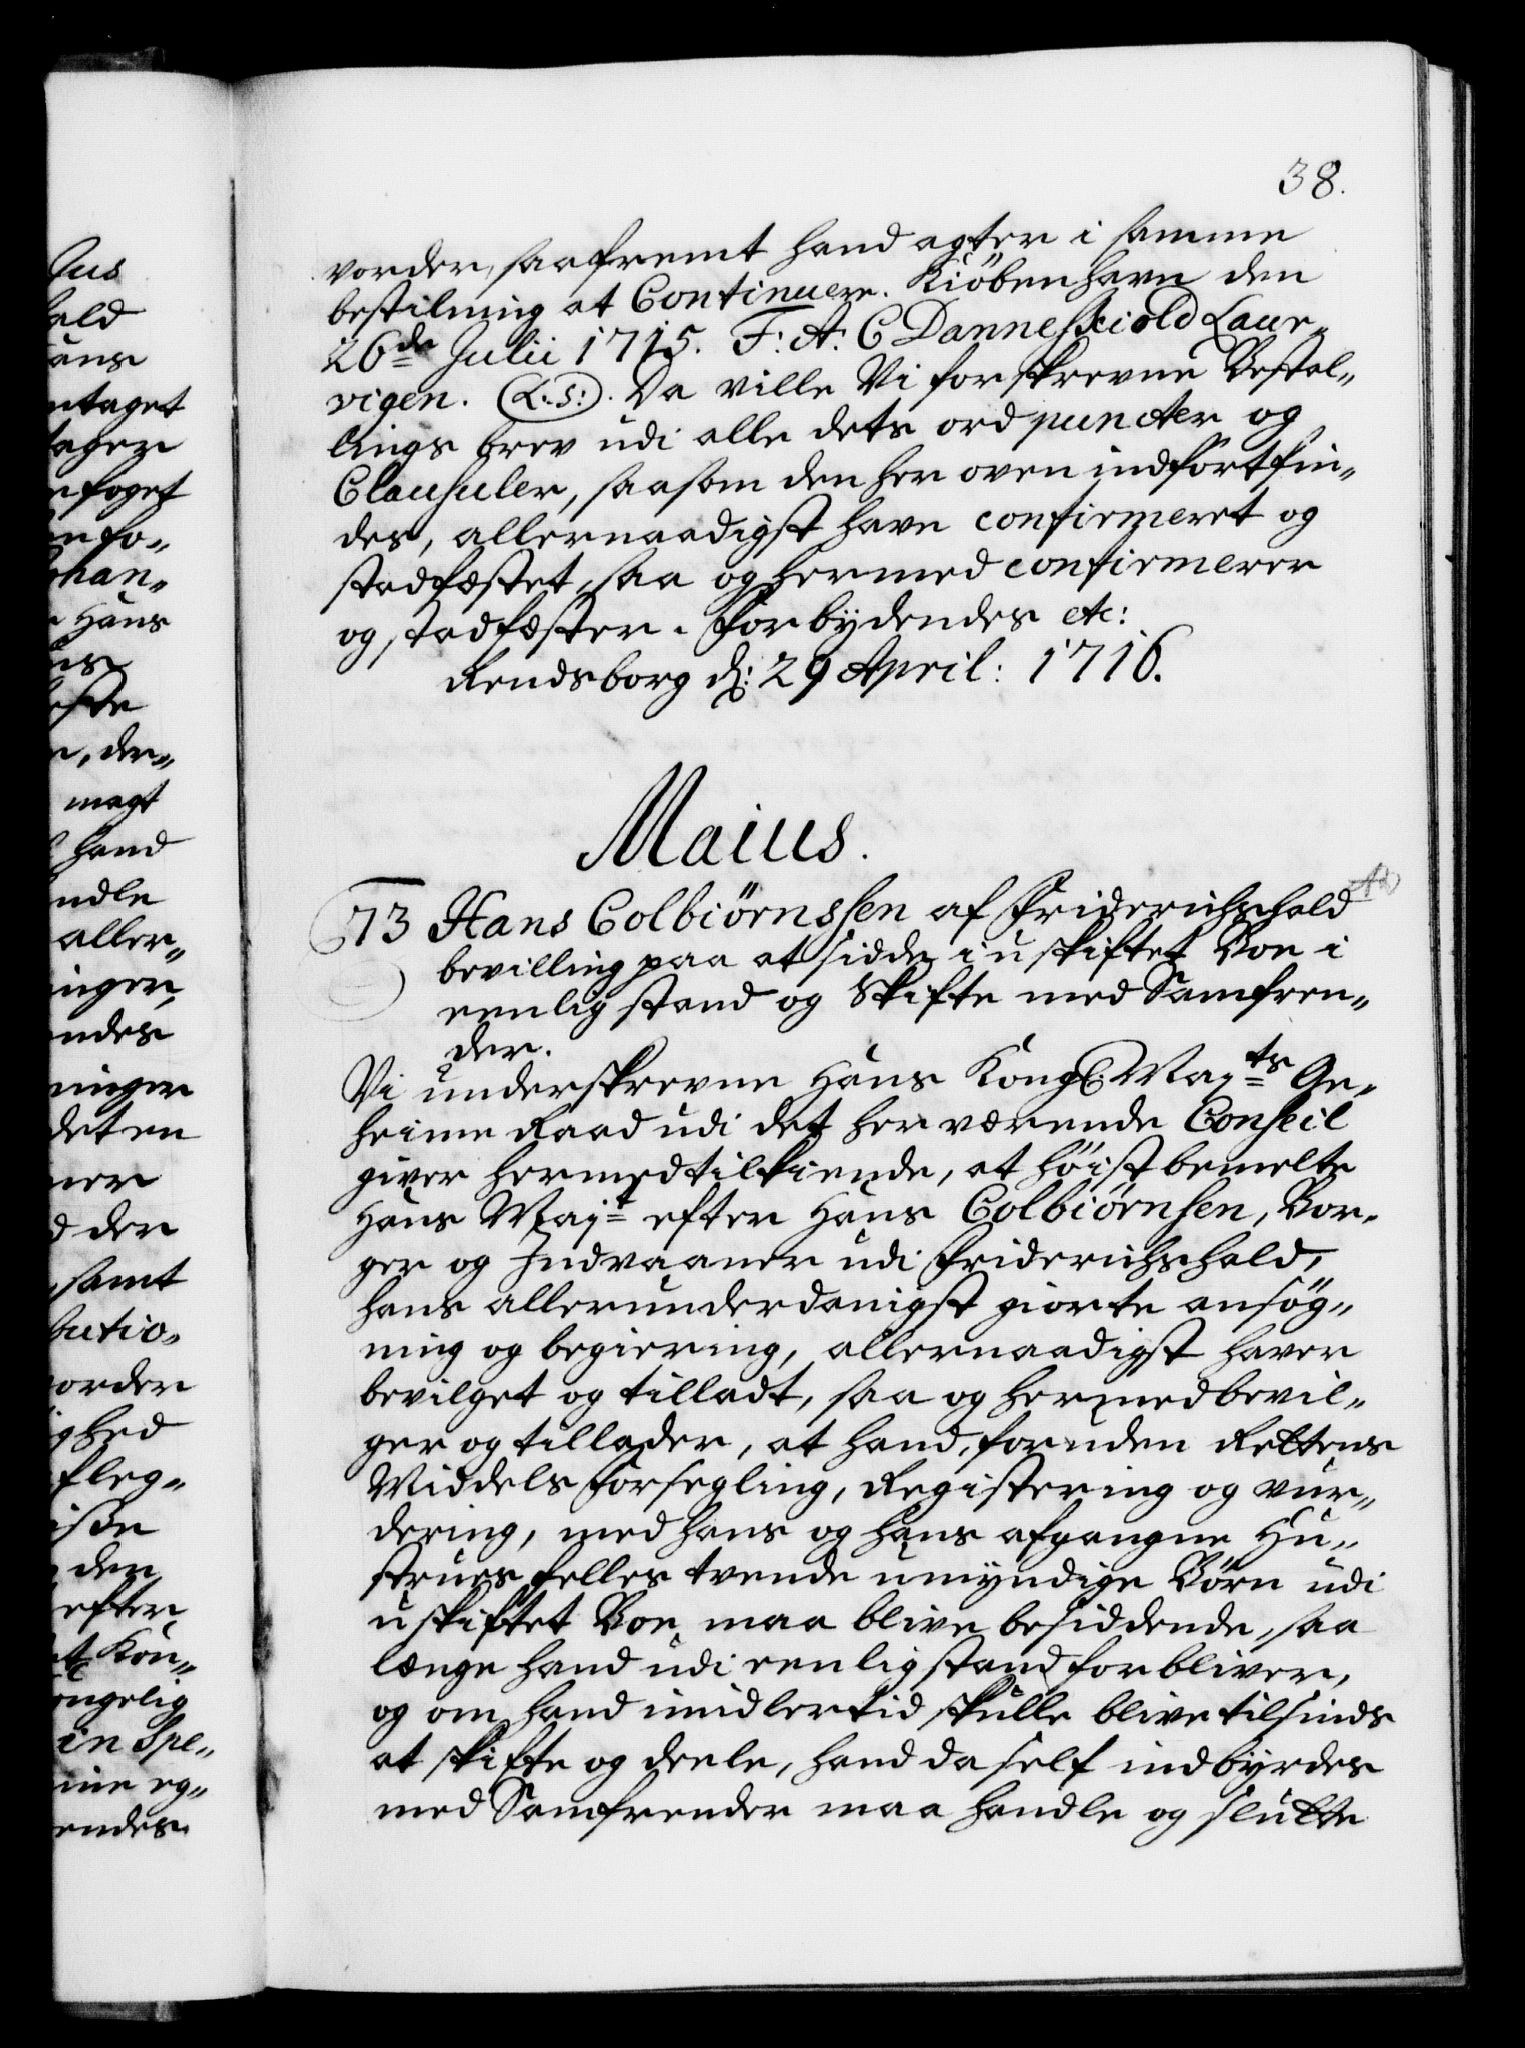 38.
vorder, saafremt hand agter i samme
bestilning at Continuere. Kiöbenhavn den
26de Julii 1715. F: A: C Danneskiold Laur„
vigen. (L.S:). Da ville Vi forskrevne Bestal„
lings brev udi alle dets ord puncter og
Clausuler, saasom den her oven indfört fin„
des, allernaadigst have confirmeret og
stadfæstet, saa og hermed confirmerer
og stadfæster. Forbydendes etc:
Rendsborg d: 29 April: 1716.
Maius.
73 Hans Colbiörnssen af Friderichshald
bevilling paa at sidde i uskiftet Boe i
eenlig stand og Skifte med Samfren„
der.
Vi underskrevne Hans Kongl: Majts Ge„
heime Raad udi det herværende Conseil
giver hermed tilkiende, at höist bemelte
Hans Majt efter Hans Colbiörnsen, Bor„
ger og Indvaaner udi Friderichshald,
hans allerunderdanigst giorte ansög„
ning og begiering, allernaadigst haver
bevilget og tilladt, saa og hermed bevil„
ger og tillader, at hand, foruden Rettens
Middels forsegling, Registering og vur„
dering, med hans og hans afgangne Hu„
strues felles tvende umyndige Börn udi
uskiftet Boe maa blive besiddende, saa
længe hand udi eenlig stand forbliver,
og om hand imidlertid skulle blive tilsinds
at skifte og deele, hand da self indbyrdes
med Samfrender maa handle og slutte
Jus
hald
hans
ntaget
tager
efoget
en fo„
ohan„
e Hans
ste
e, der„
magt
hand
andle
aller„
inger,
endes
ninger
det en
ner
d der
, samt
butio„
order
ghed
fleg„
den
efter
Kon„
ongelig
in Spe„
ine eg„
endes